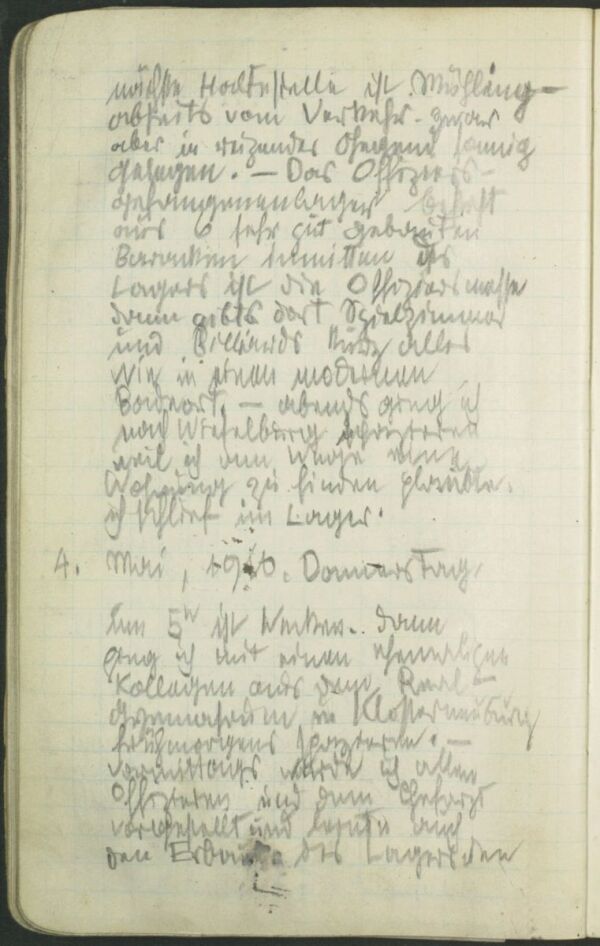 nächste Haltestelle ist Mühling -
abseits vom Verkehr - zwar
aber in reizender Gegend sonnig
gelegen. — Das Offiziers-
gefangenenlager besteht
aus 6 sehr gut gebauten
Baracken inmitten des
Lagers ist die Offiziersmesse
dann gibts dort Spielzimmer
und Billiards kurz alles
wie in einem modernen
Badeort. — abends ging ich
nach Wieselburg spazieren
weil ich am Wege eine
Wohnung zu finden glaubte.
ich schlief im Lager.
4. Mai, 1916. Donnerstag,
Um 5h ist Wecken.. dann
ging ich mit einen ehemaligen
Kollegen aus dem Real-
Gymnasium in Klosterneuburg
frühmorgens spazieren. —
vormittags wurde ich allen
Offizieren und dem Chefarzt
vorgestellt und lernte auch
den Erbauer des Lagers den